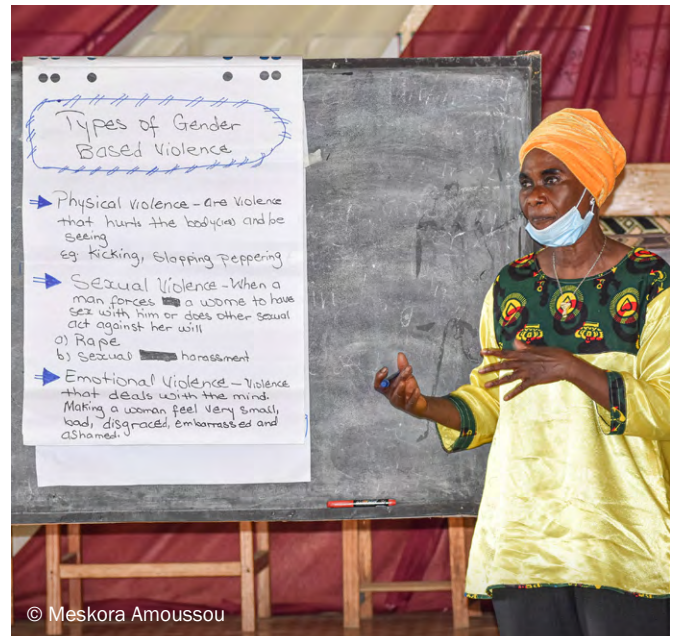 Types of Gender
Based Violence
Physical violence - are violence
that hurts the body(ies) and/be
seeing
eg. kicking, slapping peppering
Sexual Violence - When a
man forces a wome to have
sex with him or does other sexual
act against her will
a) Rape
b) sexual harassment
Emotional Violence - Violence
that deals with the mind.
Making a woman feel very small,
bad, disgraced, embarrassed and
ashamed.
© Meskora Amoussou